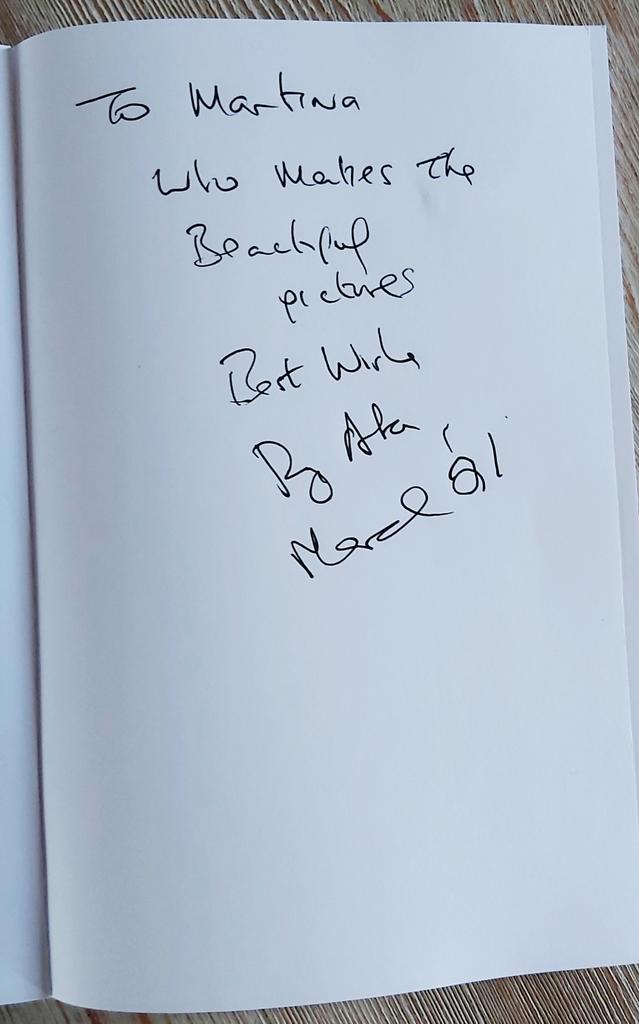 To Martina
who makes the
Beautiful
pictures
Best Wishes
By
March '21